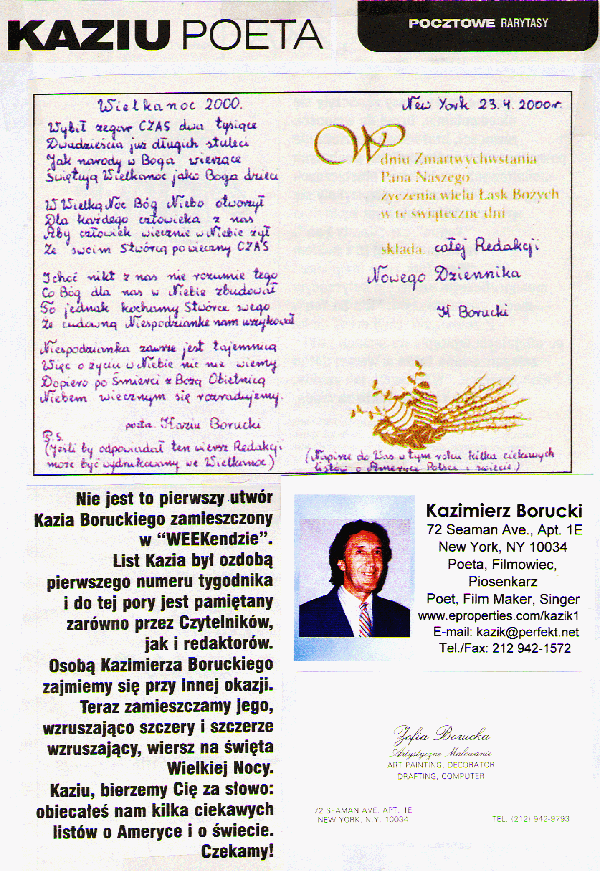 KAZIU POETA
POCZTOWE RARYTASY
Wielkanoc 2000.
Wybił zegar CZAS dwa tysiące
Dwadzieścia już długich stuleci
Jak narody w Boga wierzące
Świętują Wielkanoc jako Boga dzieci
W Wielką Noc Bóg Niebo otworzył
Dla każdego człowieka z nas
Aby człowiek wiecznie w Niebie żył
Ze swoim Stwórcą po wieczny CZAS
I choć nikt z nas nie rozumie tego
Co Bóg dla nas w Niebie zbudował
To jednak kochamy Stwórcę swego
Że cudowną Niespodziankę nam uszykował
Niespodzianka zawsze jest tajemnicą
Więc o życiu w Niebie nic nie wiemy
Dopiero po Śmierci z Bożą Obietnicą
Niebem wiecznym się rozradujemy.
poeta. Kaziu Borucki
P.S.
(Jeśli by odpowiadał ten wiersz Redakcji
może być wydrukowany we Wielkanoc)
New York 23.4.2000r.
W
dniu Zmartwychwstania
Pana Naszego
życzenia wielu Łask Bożych
w te świąteczne dni
składa całej Redakcji
Nowego Dziennika
K Borucki
(Napiszę do Was w tym roku kilka ciekawych
listów o Ameryce Polsce i świecie.)
Nie jest to pierwszy utwór
Kazia Boruckiego zamieszczony
w “WEEKendzie”.
List Kazia był ozdobą
pierwszego numeru tygodnika
i do tej pory jest pamiętany
zarówno przez Czytelników,
jak i redaktorów.
Osobą Kazimierza Boruckiego
zajmiemy się przy Innej okazji.
Teraz zamieszczamy jego,
wzruszająco szczery i szczerze
wzruszający, wiersz na święta
Wielkiej Nocy.
Kaziu, bierzemy Cię za słowo:
obiecałeś nam kilka ciekawych
listów o Ameryce i o świecie.
Czekamy!
Kazimierz Borucki
72 Seaman Ave., Apt. 1E
New York, NY 10034
Poeta, Filmowiec,
Piosenkarz
Poet, Film Maker, Singer
www.eproperties.com/kazik1
E-mail: kazik@perfekt.net
Tel./Fax: 212 942-1572
Zofia Borucka
Artystyczne Malowanie
ART PAINTING, DECORATOR
DRAFTING, COMPUTER
72 SEAMAN AVE. APT. 1E
NEW YORK, N.Y. 10034
TEL. (212) 942-9793